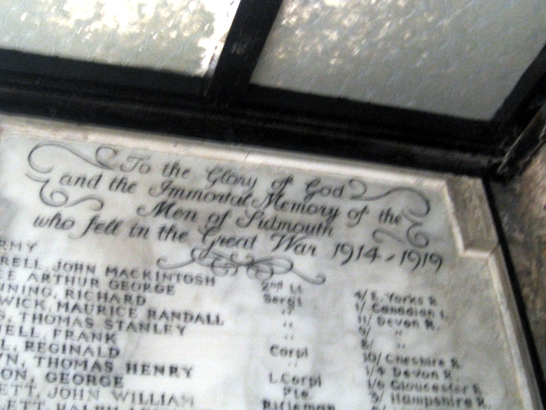 To the Glory of God
and the Immortal Memory of the
Men of Sidmouth
who fell in the Great War 1914-1919
RMY
RELL, JOHN MACKINTOSH 2nd Lt 4/ E. Yorks R.
CE ARTHUR GEORGE Sergt 1/ Canadian I.
NNING, RICHARD " 11/ Devon R.
WICK, MAURICE RANDALL " 9/ "
S, THOMAS STANLEY " 8/ "
ELL, FRANK Corpl 10/ Cheshire R.
L, REGINALD " 1/4 Devon R.
N, THOMAS HENRY L. Corpl 1/6 Gloucester R.
ON, GEORGE Pte. 3/ Hampshire R.
ETT, JOHN WILLIAM Rifleman
ETT, RALPH